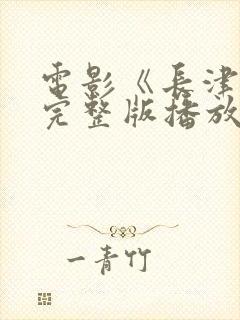 電影《長津
完整版播放
一青竹